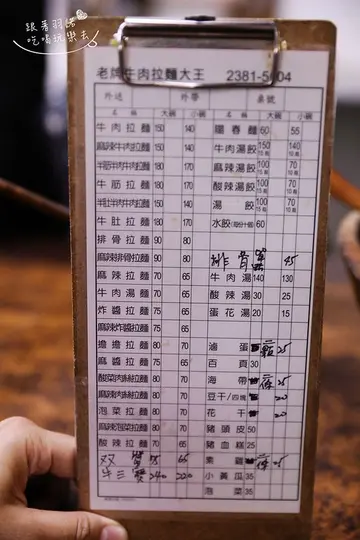 跟著羽諾
吃喝玩樂去
老牌牛肉拉麵大王 2381-5604
外送 外帶 桌號
名稱 大碗 小碗 名稱 大碗 小碗
牛肉拉麵 150 140 陽春麵 60 55
麻辣牛肉拉麵 150 140 牛肉湯餃 150 140
半筋半肉牛肉拉麵 150 140 麻辣湯餃 100 70
牛筋拉麵 150 140 酸辣湯餃 100 70
半肚半肉拉麵 150 140 湯餃 100 70
牛肚拉麵 150 140 水餃 60
排骨拉麵 90 80
麻辣排骨拉麵 90 80 排骨 45
麻辣拉麵 70 65 牛肉湯 140 130
牛肉湯麵 70 65 酸辣湯 30 25
炸醬拉麵 70 65 蛋花湯 20 15
麻辣炸醬拉麵 70 65
擔擔拉麵 80 70 滷蛋 二顆25
麻醬拉麵 80 70 百頁 30
酸菜肉絲拉麵 80 70 海帶 25
麻辣肉絲拉麵 80 70 豆干/四塊 20
泡菜拉麵 80 70 花干 20
麻辣泡菜拉麵 80 70 豬頭皮 50
酸辣拉麵 70 65 豬血糕 25
双醬 75 65 素雞 25
牛三寶 240 220 小黃瓜 35
泡菜 35